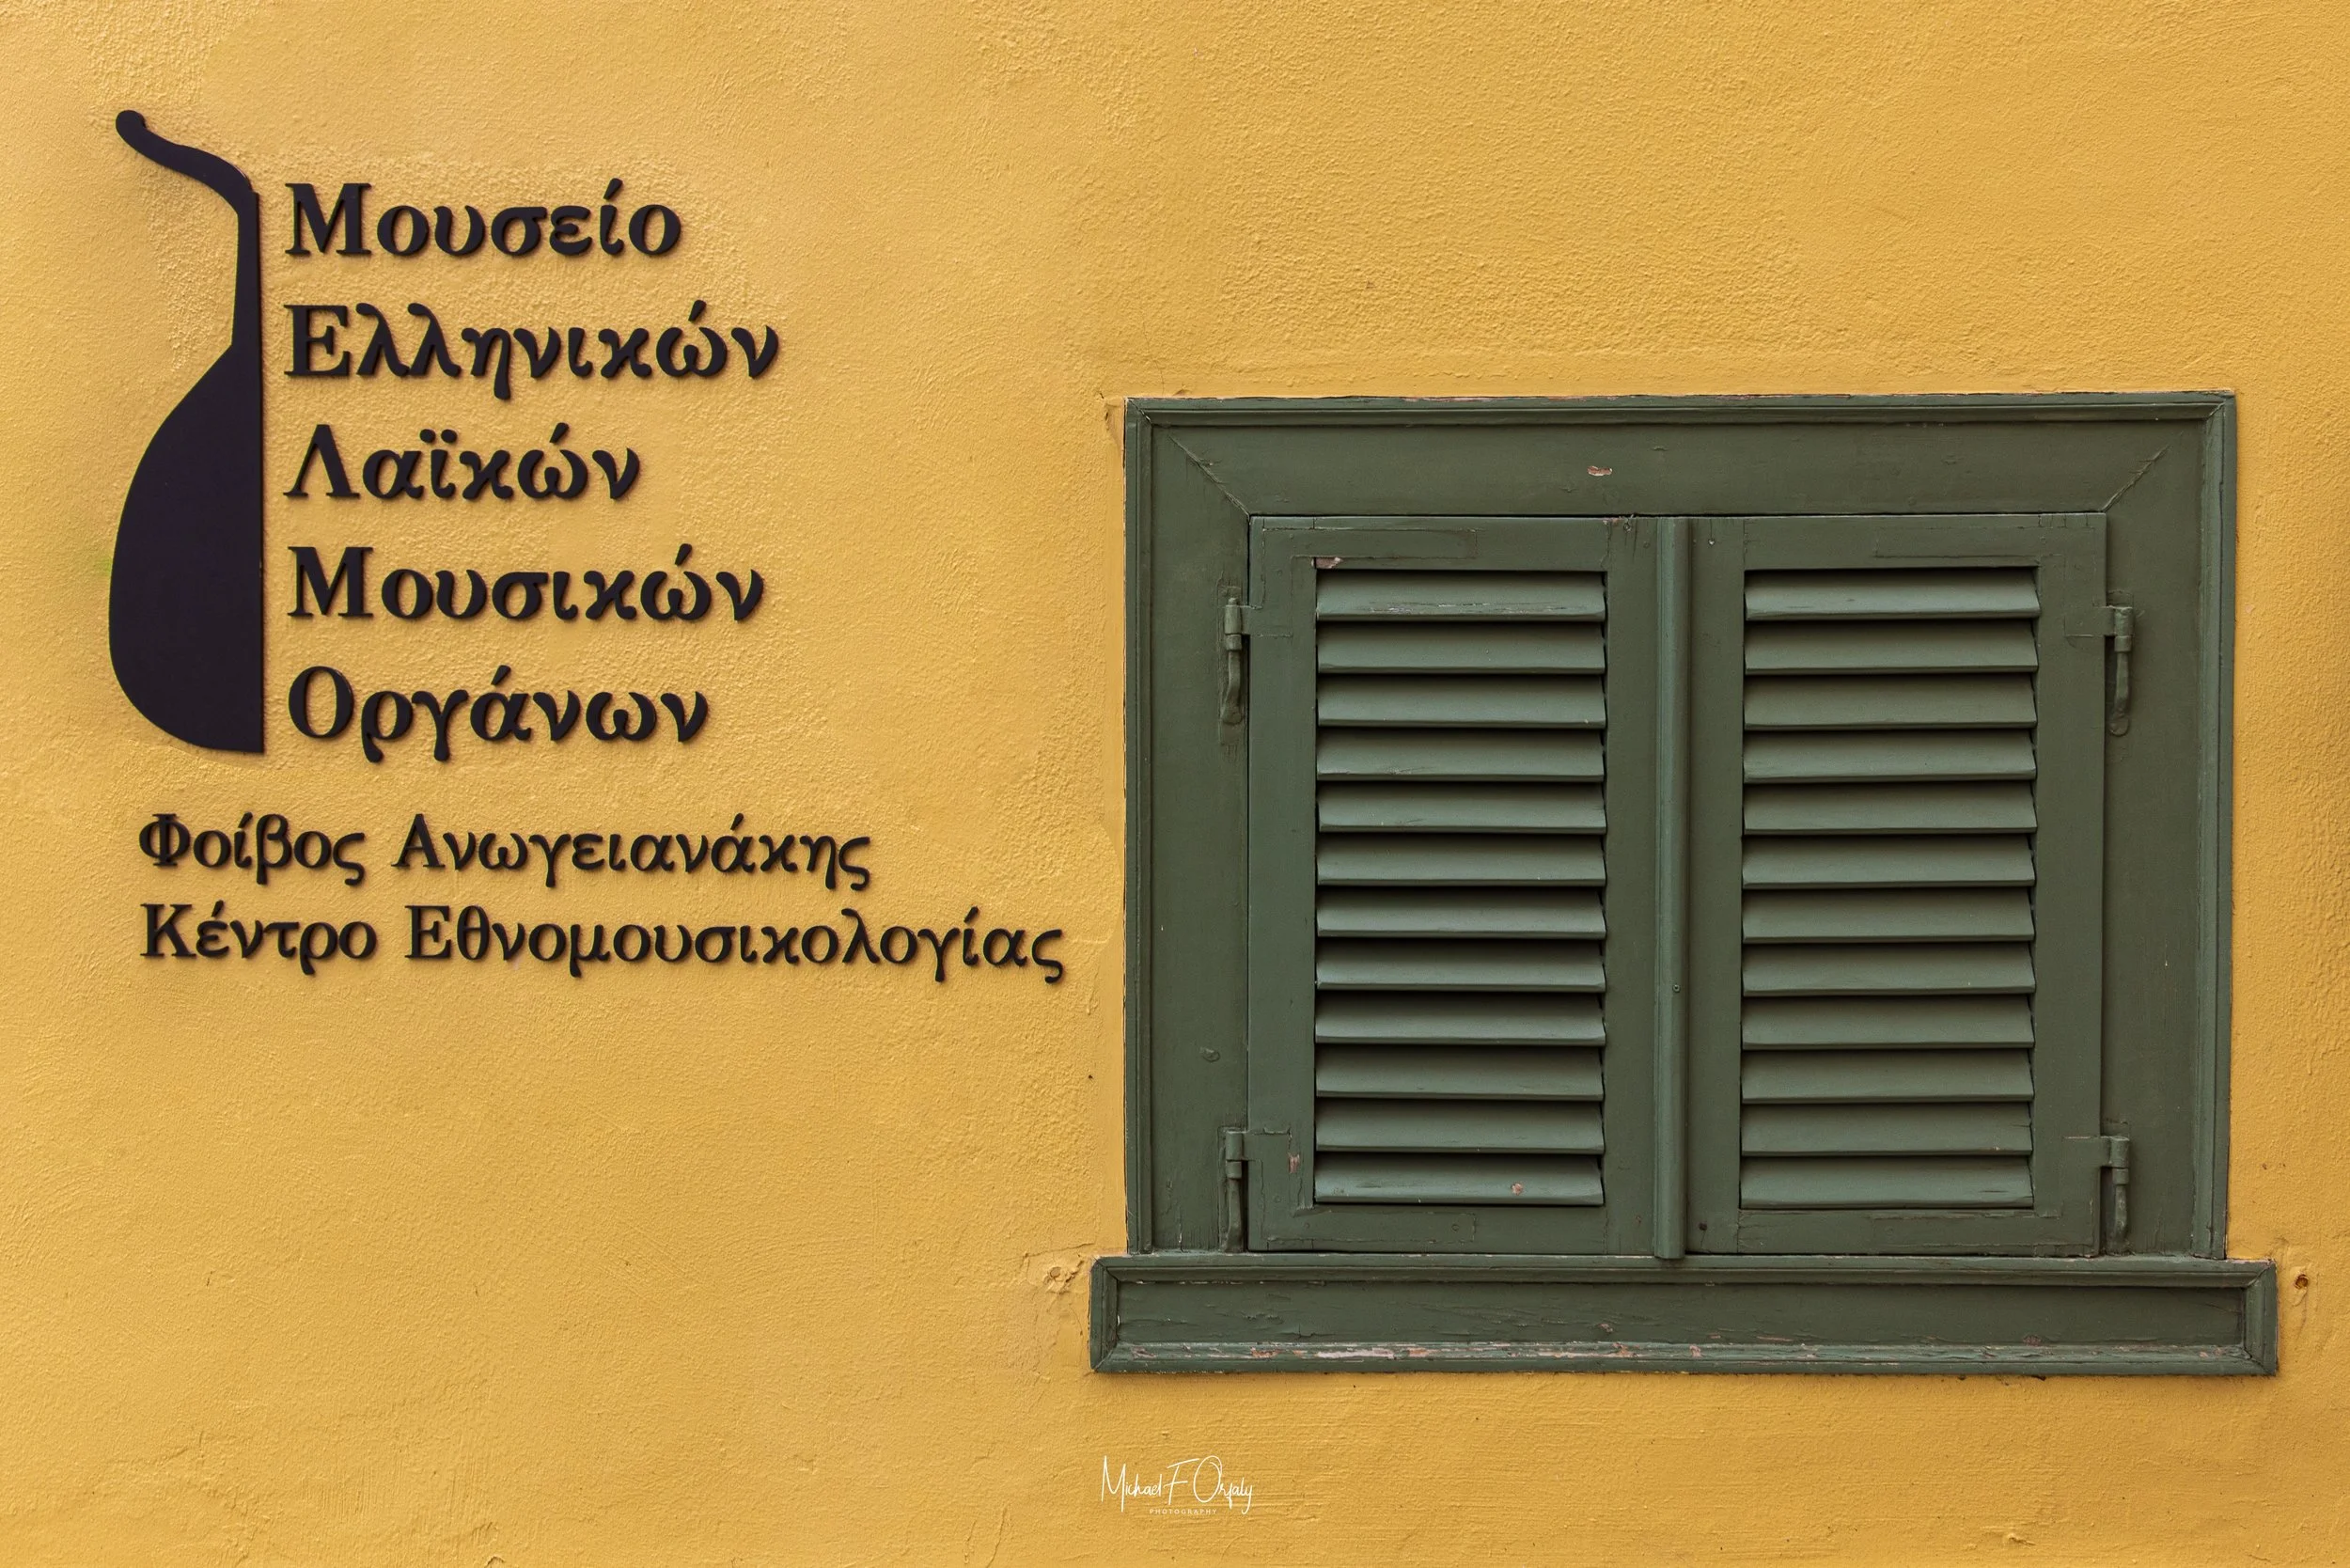 Μουσείο
Ελληνικών
Λαϊκών
Μουσικών
Οργάνων
Φοίβος Ανωγειανάκης
Κέντρο Εθνομουσικολογίας
Michael F Orfaly
PHOTOGRAPHY